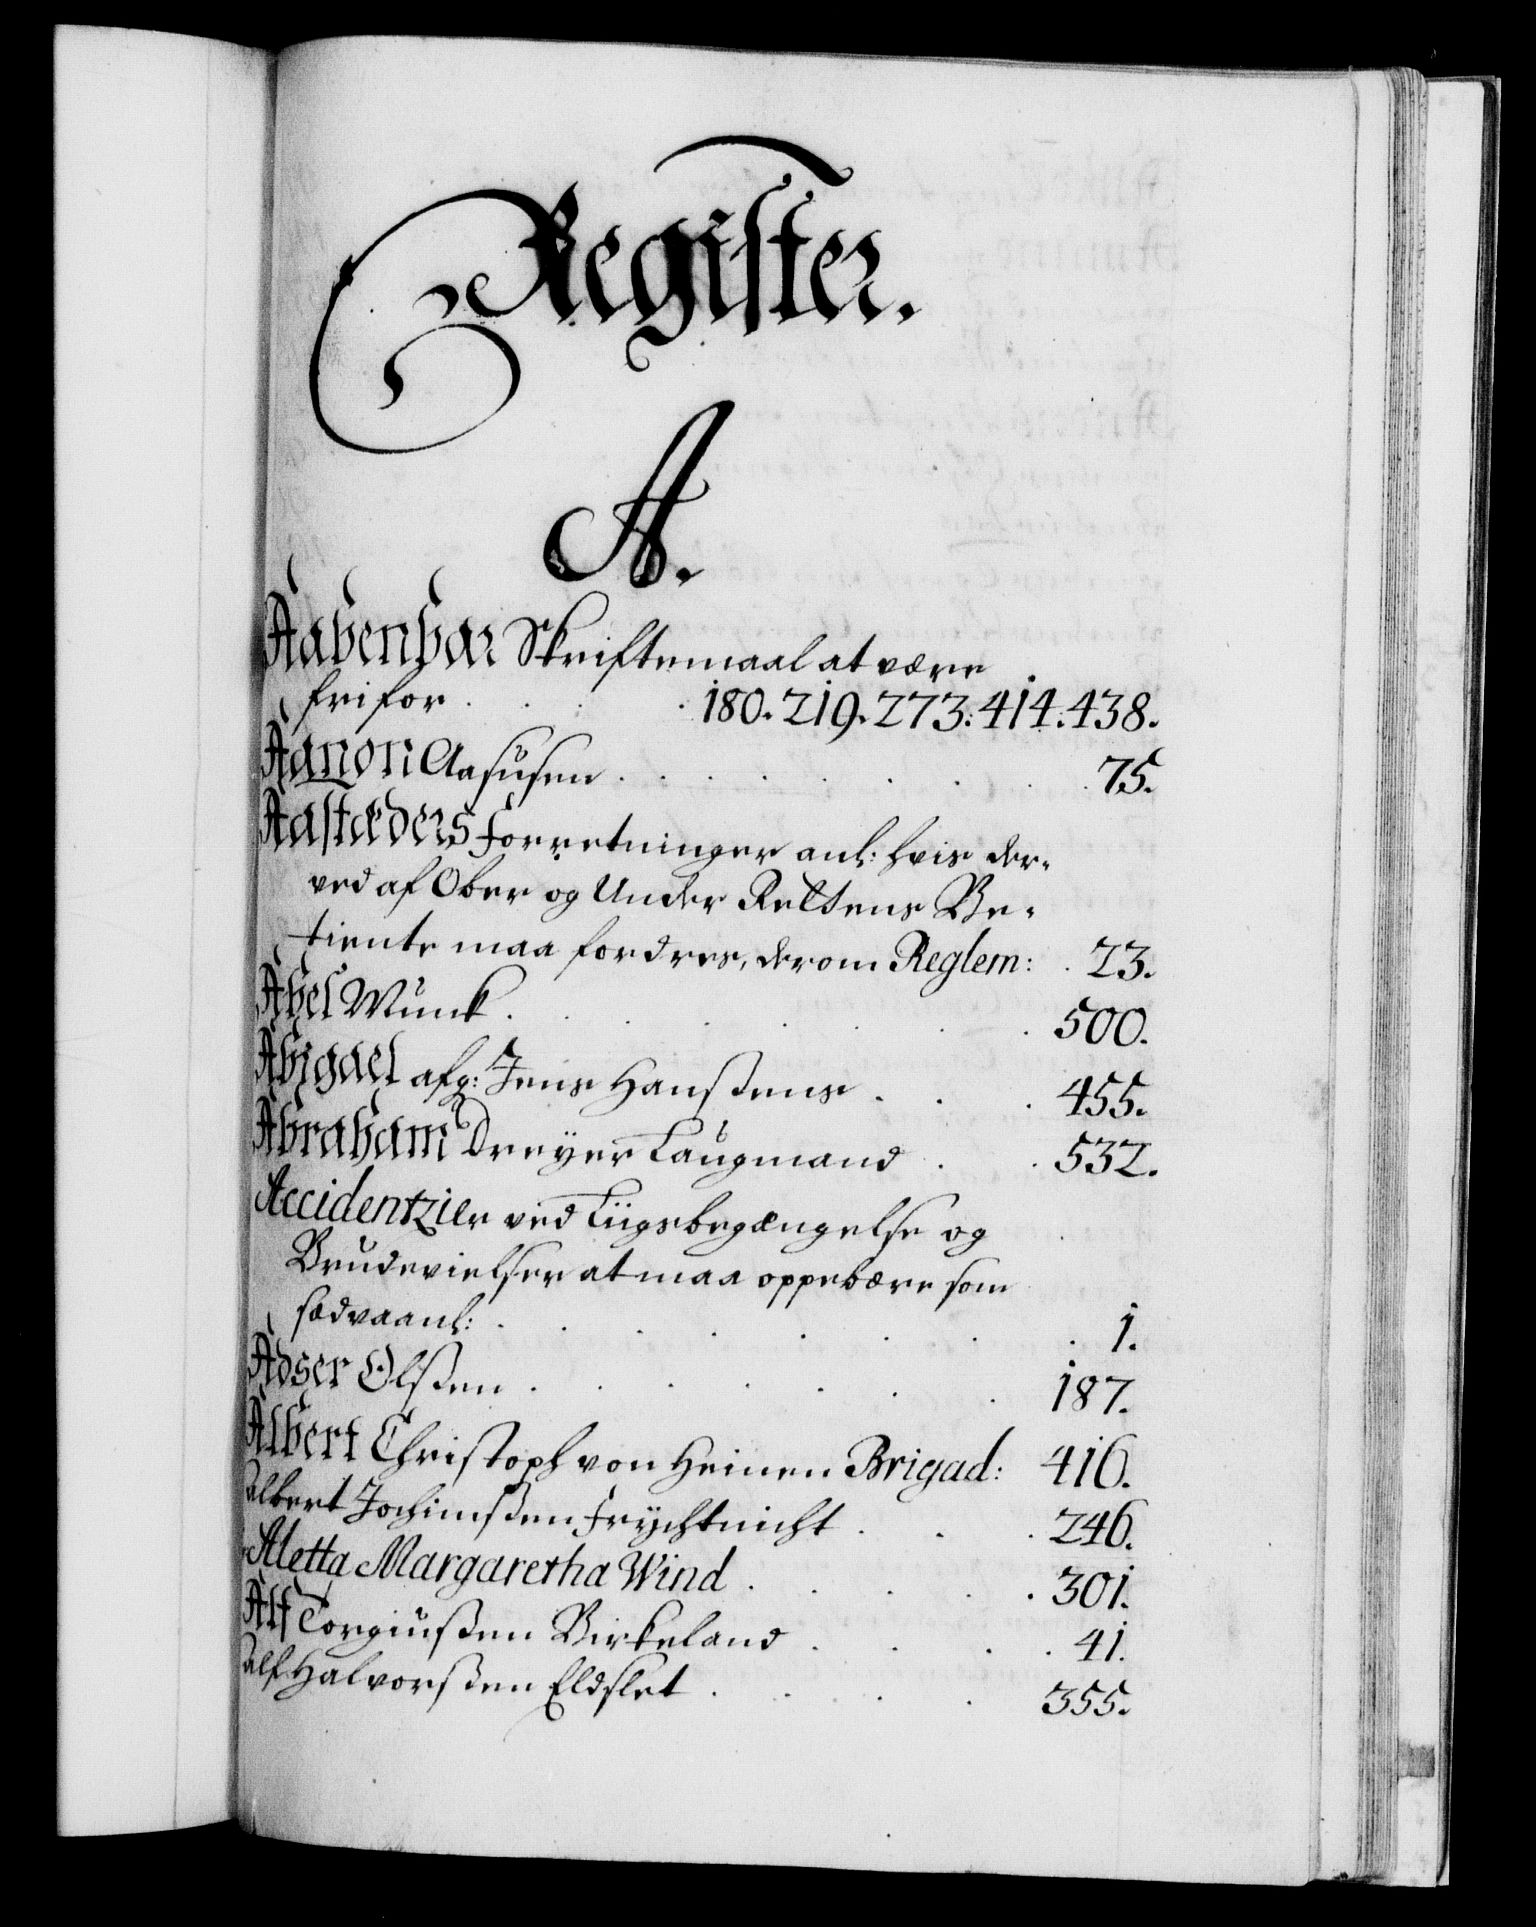 Register.
A.
Aabenbar Skriftemaal at være
fri for . . . 180. 219. 273. 414. 438.
Aanon Aasusen . . . . . . . 75.
Aastæders Forretninger anl: hvis der-
ved af Ober og Under Rettens Be-
tiente maa fordres, derom Reglem: . 23.
Abel Munk . . . . . . . 500.
Abigael afg: Jens Hanßens . . . 455.
Abraham Dreyer Laugmand . . 532.
Accidentzier ved Liigsbegængelse og
Brudevielser at maa oppebære som
sædvaanl: . . . . . . . . 1.
Adser Olßen . . . . . . . 187.
Albert Christoph von Heinen Brigad: 416.
Albert Jochimßen Frychtnicht . . . 246.
Aletta Margaretha Wind . . . . . 301.
Alf Torgiußen Birkeland . . . . 41.
Alf Halvorßen Eldslet . . . . 355.